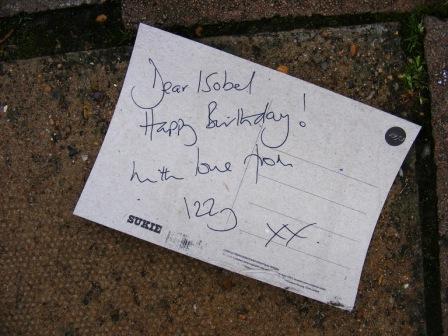 Dear Isobel
Happy Birthday!
with love from
Izzy
XX
SUKIE